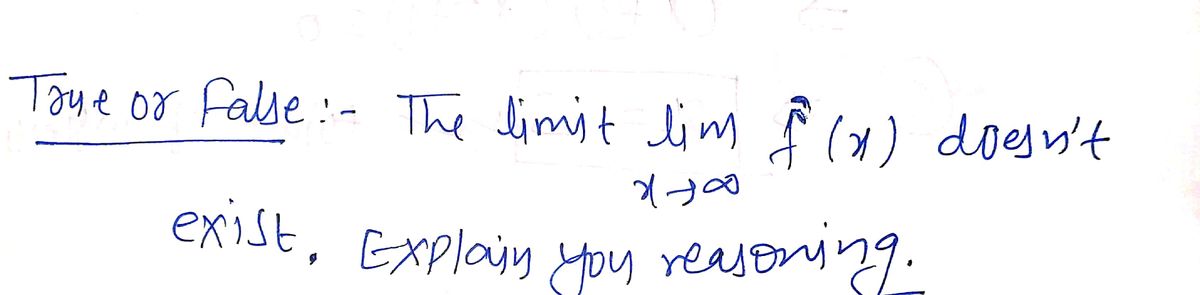 True or False :- The limit lim f(x) doesn't
x→∞
exist. Explain you reasoning.